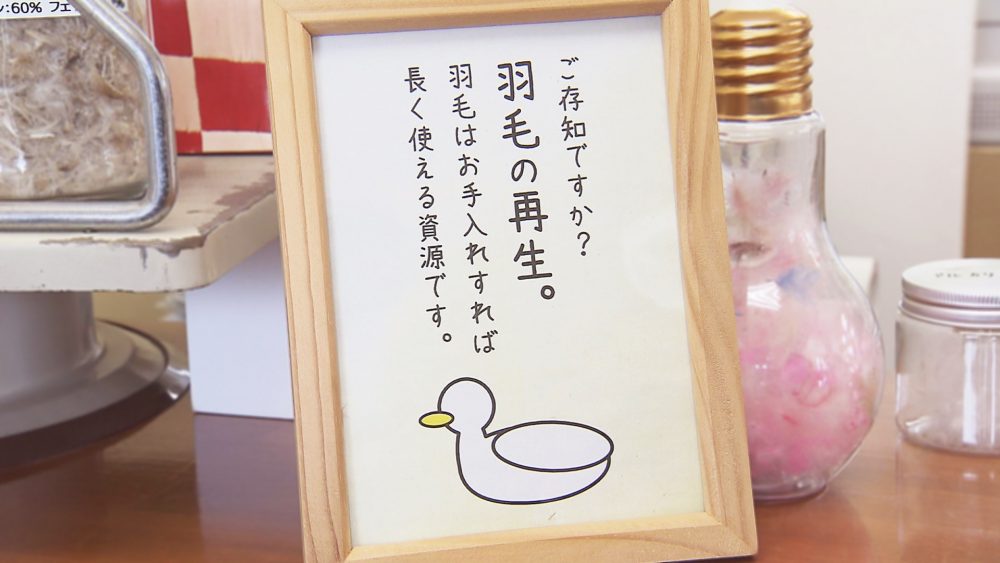 ご存知ですか?
羽毛の再生。
羽毛はお手入れすれば
長く使える資源です。
:60% フェ